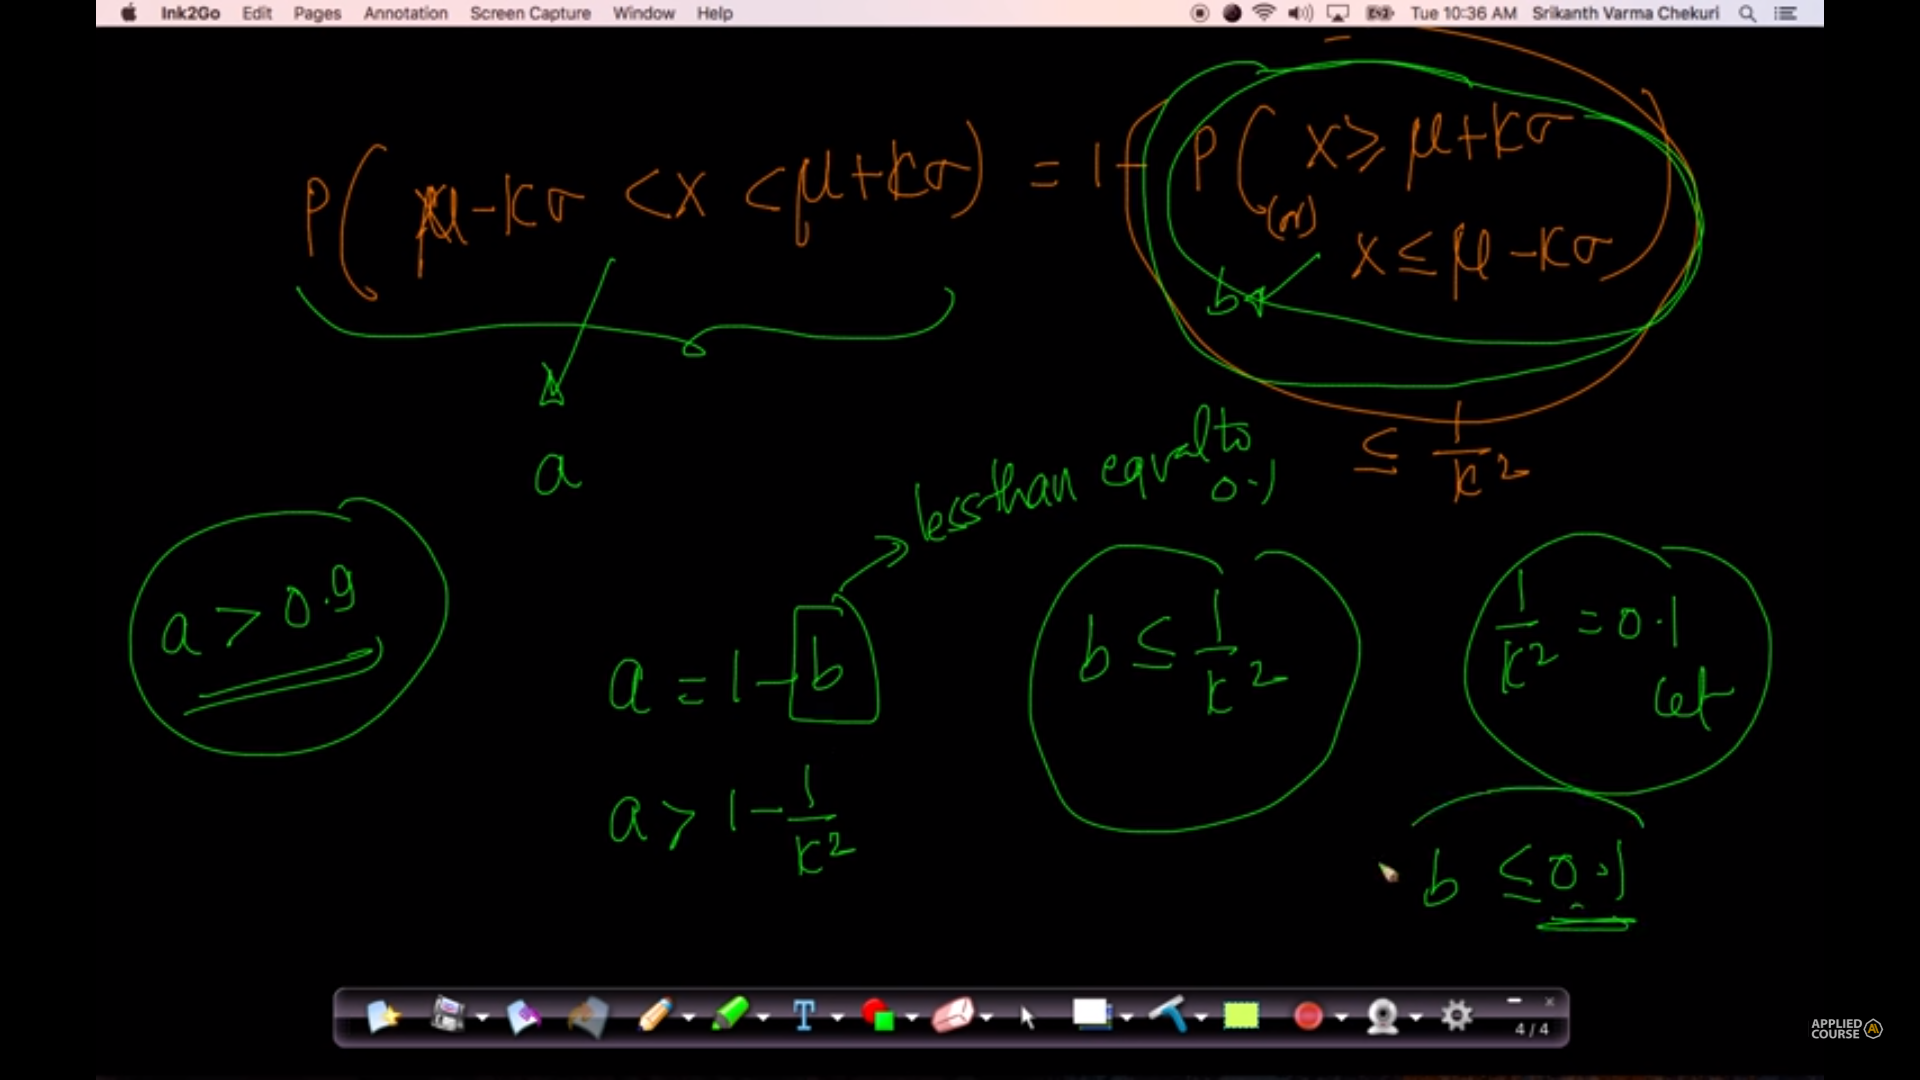 Ink2Go Edit Pages Annotation Screen Capture Window Help Tue 10:36 AM Srikanth Varma Chekuri
P( μ-kσ < x < μ+kσ ) = 1 - P( x ≥ μ+kσ
(or)
x ≤ μ-kσ)
b
≤ 1/k²
a
less than equal to
0.1
a > 0.9
a = 1 - b
b ≤ 1/k²
1/k² = 0.1
let
a > 1 - 1/k²
b ≤ 0.1
T
4 / 4
APPLIED
COURSE